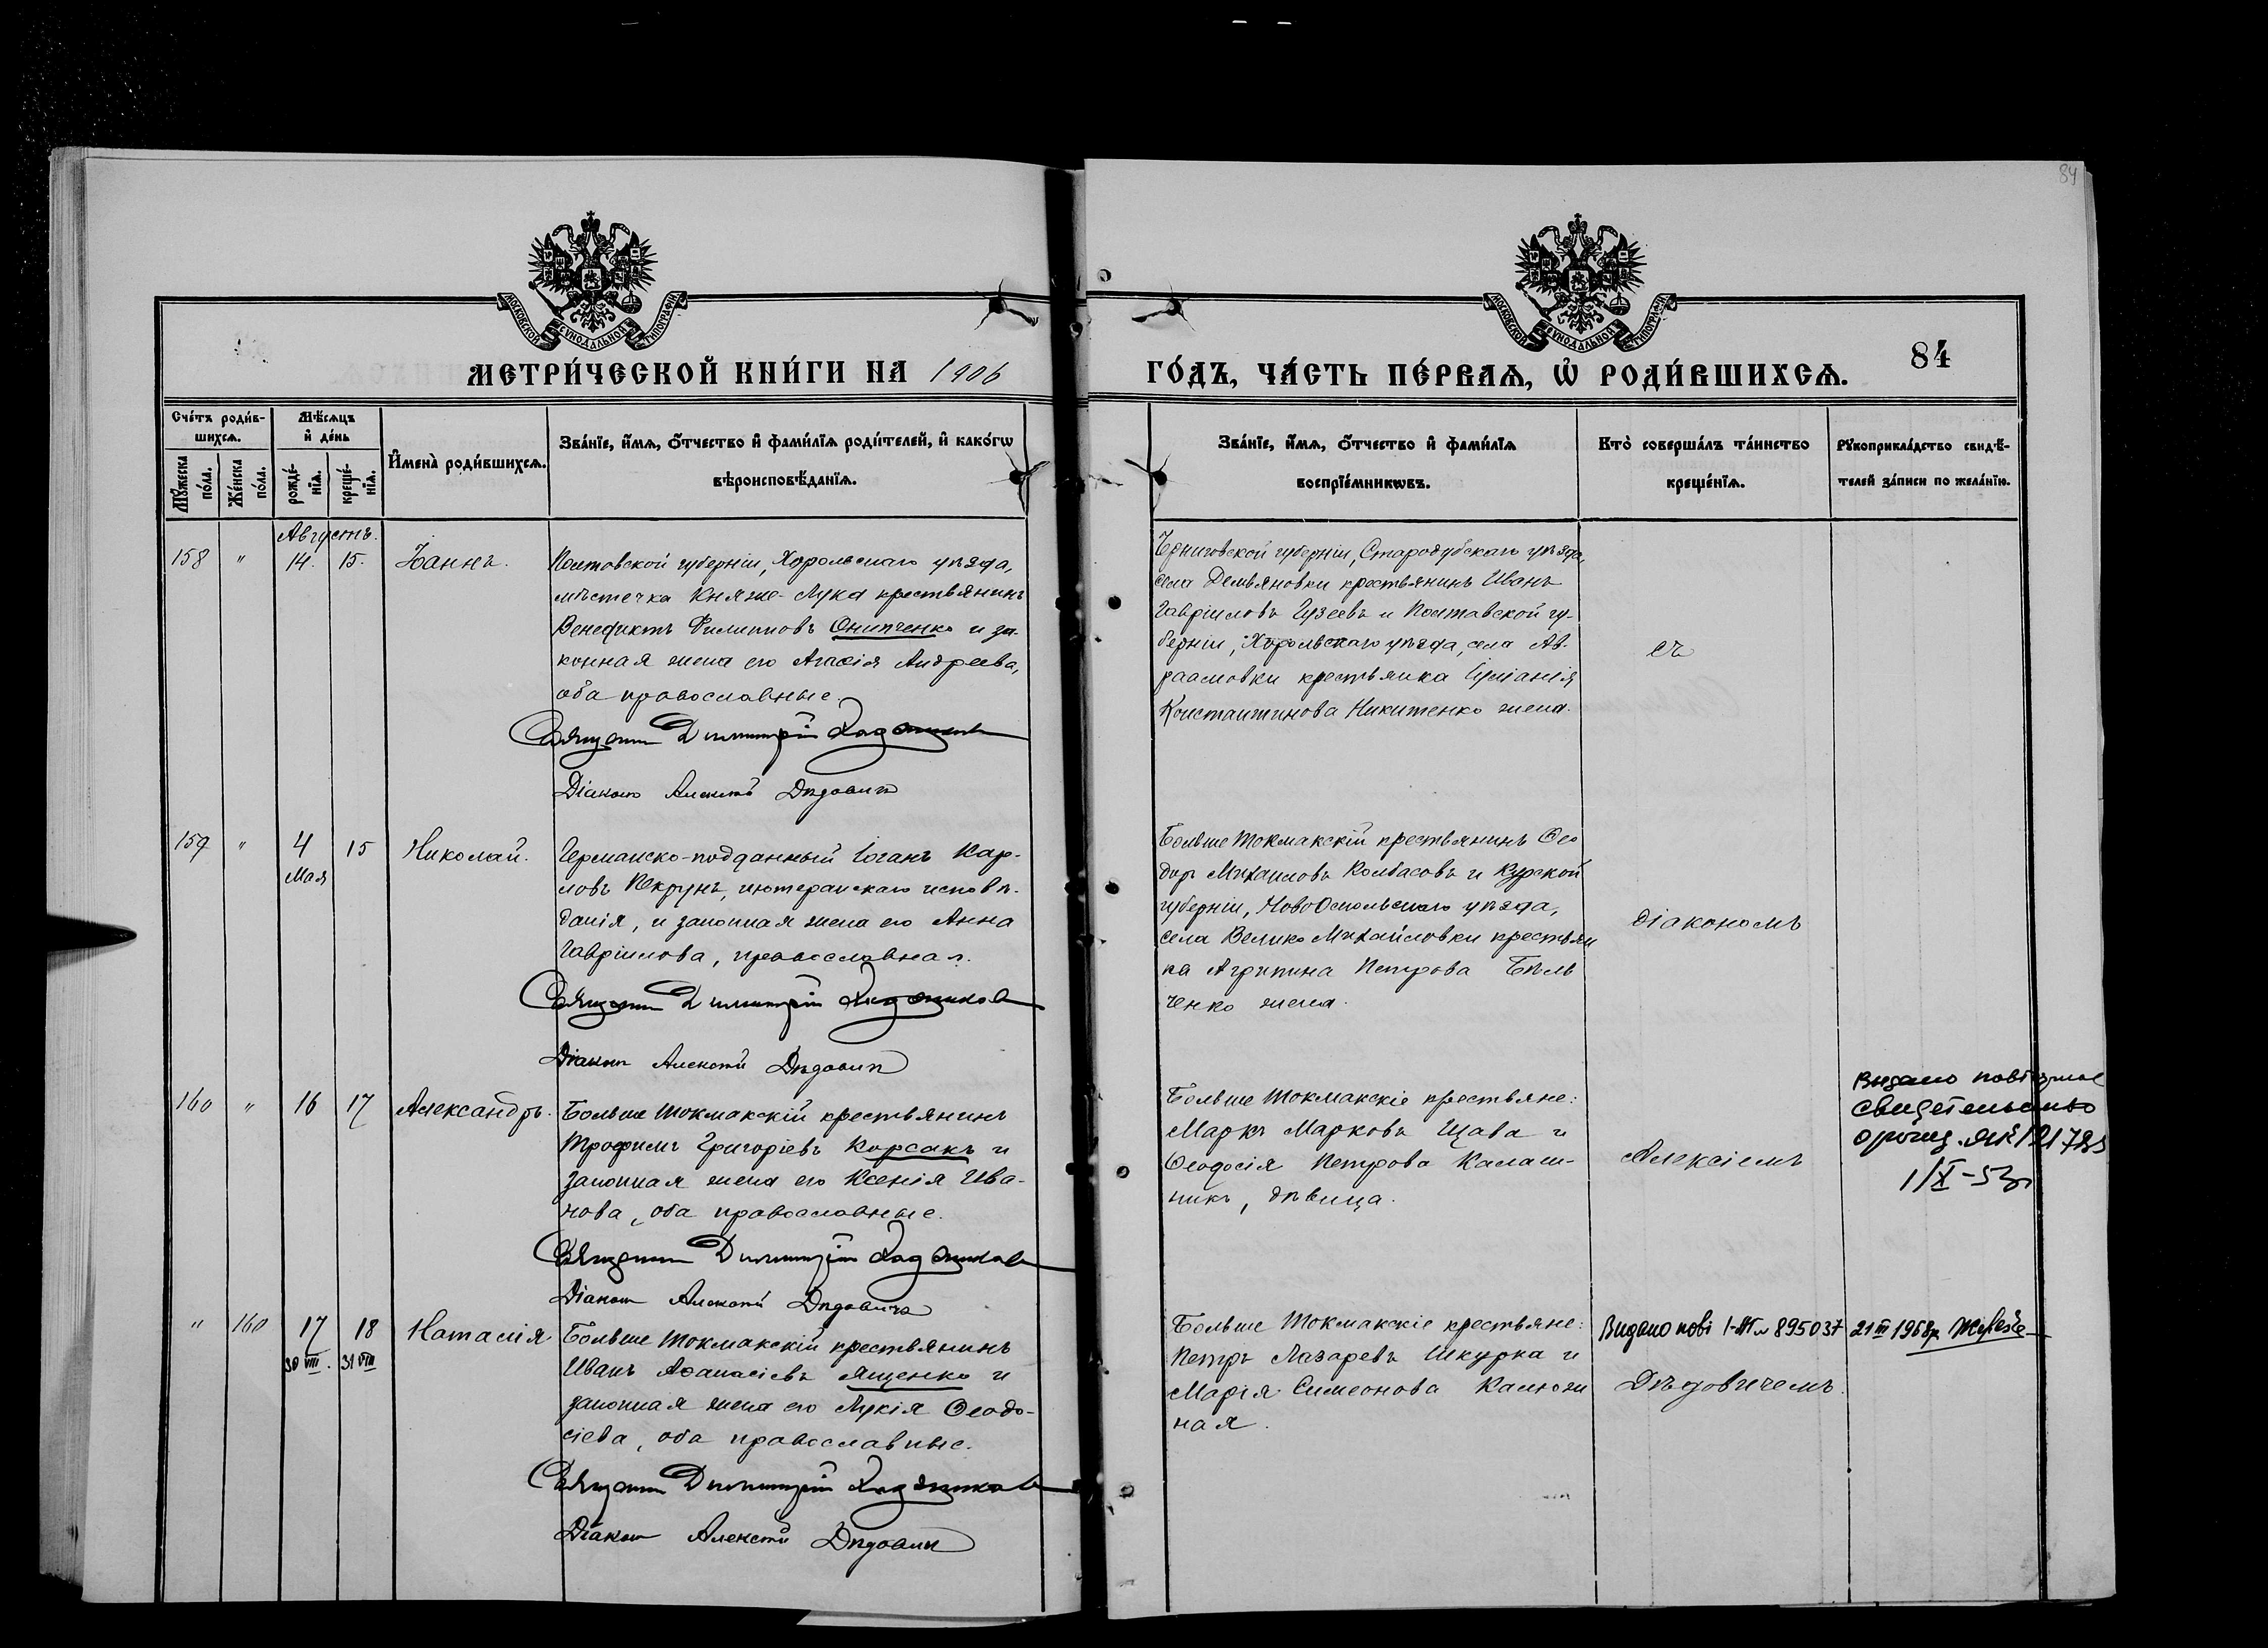 84
МОСКОВСКОЙ СУНОДАЛЬНОЙ ТИПОГРАФІИ
МОСКОВСКОЙ СУНОДАЛЬНОЙ ТИПОГРАФІИ
МЕТРИ́ЧЕСКОЙ КНИ́ГИ НА 1906
ГО́ДЪ, ЧА́СТЬ ПЕ́РВАѦ, Ѡ҆ РОДИ́ВШИХСѦ. 84
Сче́тъ роди́в-
шихсѧ.
Мѣ́сѧцъ
и҆ де́нь
Мꙋ́жеска по́ла.
Же́нска по́ла.
рожде́-
нїѧ.
креще́-
нїѧ.
И҆мена̀ роди́вшихсѧ.
Зва́нїе, и҆́мѧ, ѻ҆́тчество и҆ фами́лїѧ роди́телей, и҆ како́гѡ
вѣроисповѣ́данїѧ.
Зва́нїе, и҆́мѧ, ѻ҆́тчество и҆ фами́лїѧ
воспрїе́мникѡвъ.
Кто̀ соверша́лъ та́инство
креще́нїѧ.
Рꙋкоприкла́дство свидѣ́-
телей за́писи по жела́нїю.
Августъ.
158 " 14. 15. Іоаннъ.
Полтовской губерніи, Хорольскаго уѣзда,
мѣстечка Княже-Лука крестьянинъ
Венедиктъ Филипповъ Онипченко и за-
конная жена его Агасія Андреева,
оба православные.
Священникъ Димитрій
Діаконъ Алексѣй Дѣдовичъ
Черниговской губерніи, Стародубскаго уѣзда,
села Демьяновки крестьянинъ Иванъ
Гавріиловъ Гузеевъ и Полтавской гу-
берніи, Хорольскаго уѣзда, села Ав-
раамовки крестьянка Іуліанія
Константинова Никитенко жена.
съ
159 " 4 15 Николай.
Мая
Германско-подданный Іоганъ Кар-
ловъ Пекрунъ, лютеранскаго исповѣ-
данія, и законная жена его Анна
Гавріилова, православная.
Священникъ Димитрій
Діаконъ Алексѣй Дѣдовичъ
Больше Токмакскій крестьянинъ Ѳео
доръ Михаиловъ Колбасовъ и Курской
губерніи, НовоОскольскаго уѣзда,
села Велико Михайловки крестьян
ка Агрипина Петрова Бѣль
ченко жена.
діакономъ
160 " 16 17 Александръ.
Больше Токмакскій крестьянинъ
Трофимъ Григоріевъ Корсакъ и
законная жена его Ксенія Ива-
нова, оба православные.
Священникъ Димитрій
Діаконъ Алексѣй Дѣдовичъ
Больше Токмакскіе крестьяне:
Маркъ Марковъ Щава и
Ѳеодосія Петрова Калаш-
никъ, дѣвица.
Алексіемъ
Видано повторное
свидетельство
1/X-53г
" 160 17 18 Наталія
30 VIII. 31 VIII
Больше Токмакскій крестьянинъ
Иванъ Аѳанасіевъ Ященко и
законная жена его Лукія Ѳеодо-
сіева, оба православные.
Священникъ Димитрій
Діаконъ Алексѣй Дѣдовичъ
Больше Токмакскіе крестьяне:
Петръ Лазаревъ Шкурка и
Марія Симеонова Калюж
ная.
Видано нові 895037 21 III 1968р.
Дѣдовичемъ.